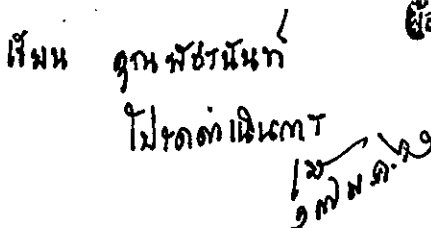 เรียน คุณพัชรนันท์
โปรดดำเนินการ